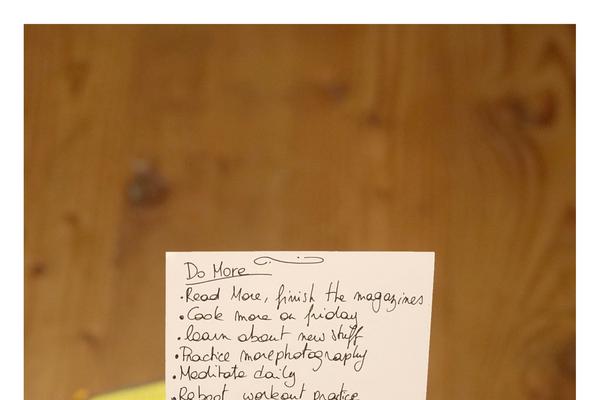 Do More
• Read More, finish the magazines
• Cook more on friday
• learn about new stuff
• Practice more photography
• Meditate daily
• Reboot workout practice